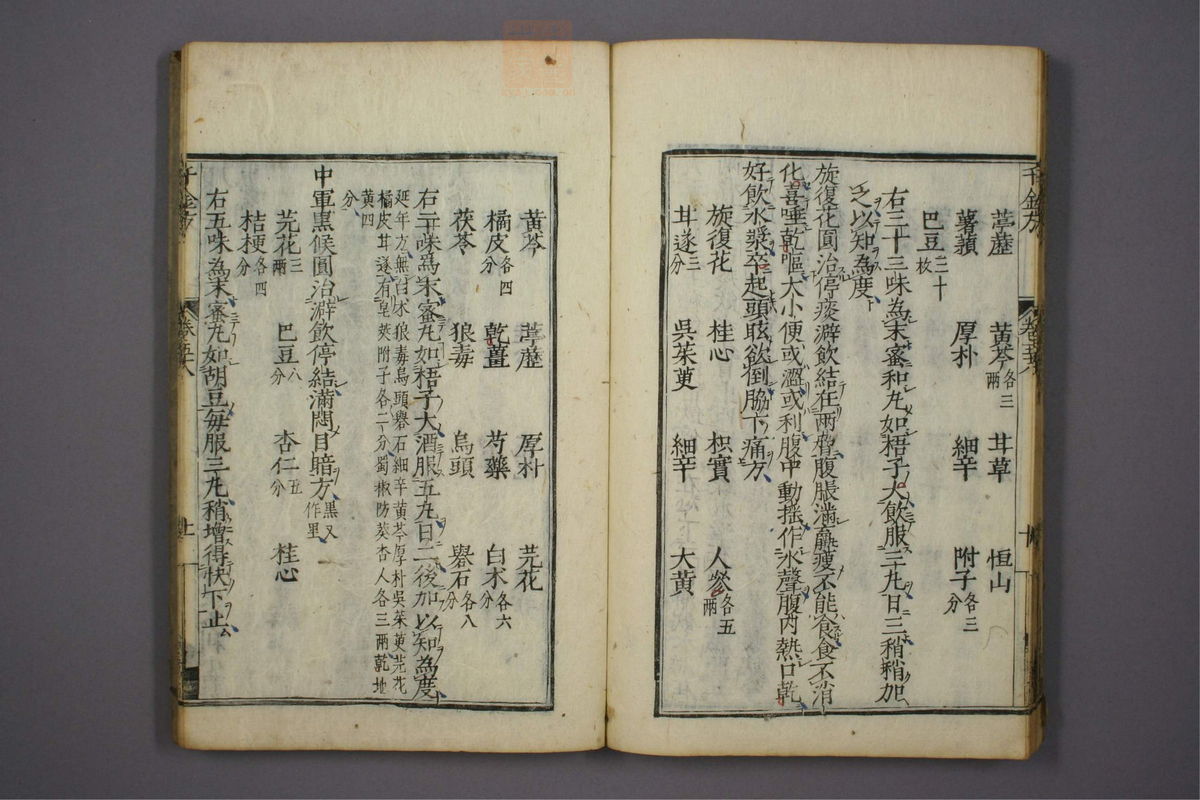 葶藶 黄芩各三兩 甘草 恒山
薯蕷 厚朴 細辛 附子各三分
巴豆三十枚
右三十三味為末蜜和丸如梧子大飲服三丸日三稍稍加
之以知為度
旋復花圓治停痰澼飲結在兩脅腹脹滿羸瘦不能食食不消
化喜唾乾嘔大小便或澀或利腹中動摇作水聲腹内熱口乾
好飲水漿卒起頭眩欲倒脇下痛方
旋復花 桂心 枳實 人參各五兩
甘遂三分 吳茱萸 細辛 大黄
黄芩 葶藶 厚朴 芫花
橘皮各四分 乾薑 芍藥 白朮各六分
茯苓 狼毒 烏頭 礜石各八分
右二味為末蜜丸如梧子大酒服五丸日二後加以知為度
延年方無白朮狼毒烏頭礜石細辛黄芩厚朴吳茱萸芫花
橘皮甘遂有皂莢附子各二分蜀椒防葵杏人各三兩乾地
黄四分
中軍黒候圓治澼飲停結滿悶目暗方黒又作里
芫花三兩 巴豆八分 杏仁五分 桂心
桔梗各四分
右五味為末蜜丸如胡豆每服三丸稍增得快下止
千金方